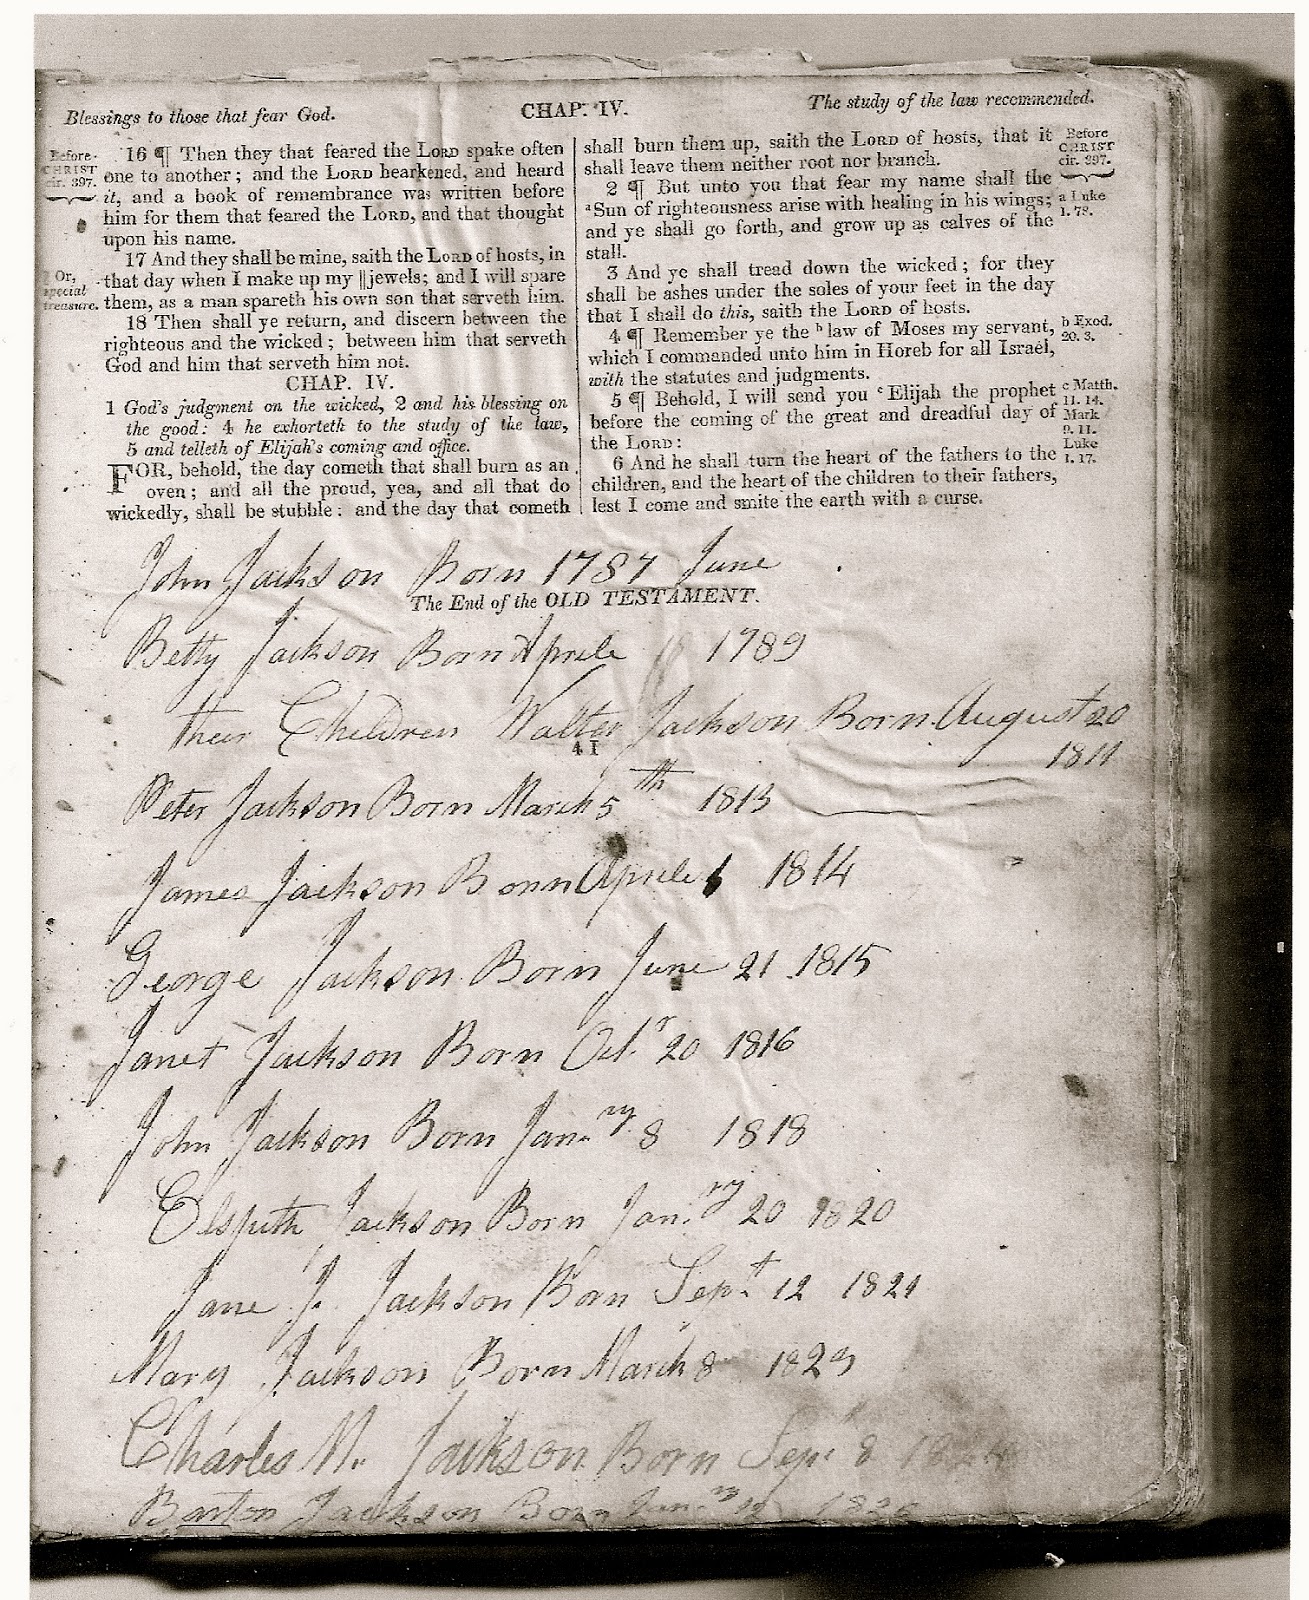 Blessings to those that fear God.
CHAP. IV.
The study of the law recommended.
Before
CHRIST
cir. 397.
16 ¶ Then they that feared the LORD spake often
one to another; and the LORD hearkened, and heard
it, and a book of remembrance was written before
him for them that feared the LORD, and that thought
upon his name.
17 And they shall be mine, saith the LORD of hosts, in
that day when I make up my ‖jewels; and I will spare
them, as a man spareth his own son that serveth him.
Or,
special
treasure.
18 Then shall ye return, and discern between the
righteous and the wicked; between him that serveth
God and him that serveth him not.
CHAP. IV.
1 God's judgment on the wicked, 2 and his blessing on
the good: 4 he exhorteth to the study of the law,
5 and telleth of Elijah's coming and office.
FOR, behold, the day cometh that shall burn as an
oven; and all the proud, yea, and all that do
wickedly, shall be stubble: and the day that cometh
shall burn them up, saith the LORD of hosts, that it
shall leave them neither root nor branch.
2 ¶ But unto you that fear my name shall the
ᵃSun of righteousness arise with healing in his wings;
and ye shall go forth, and grow up as calves of the
stall.
3 And ye shall tread down the wicked; for they
shall be ashes under the soles of your feet in the day
that I shall do this, saith the LORD of hosts.
4 ¶ Remember ye the ᵇlaw of Moses my servant,
which I commanded unto him in Horeb for all Israel,
with the statutes and judgments.
5 ¶ Behold, I will send you ᶜElijah the prophet
before the coming of the great and dreadful day of
the LORD:
6 And he shall turn the heart of the fathers to the
children, and the heart of the children to their fathers,
lest I come and smite the earth with a curse.
Before
CHRIST
cir. 397.
a Luke
1. 78.
b Exod.
20. 3.
c Matth.
11. 14.
Mark
9. 11.
Luke
1. 17.
John Jackson Born 1787 June
The End of the OLD TESTAMENT.
Betty Jackson Born Aprile 18 1789
their Children Walter Jackson Born August 20
1811
4 I
Peter Jackson Born March 5th 1813
James Jackson Born Aprile 1814
George Jackson Born June 21 1815
Janet Jackson Born Oct.r 20 1816
John Jackson Born Jan.ry 8 1818
Elspeth Jackson Born Jan.ry 20 1820
Jane J. Jackson Born Sep.t 12 1821
Mary Jackson Born March 8 1823
Charles N. Jackson Born Sep.t 8
Barton Jackson Born Jan.ry 12 1826